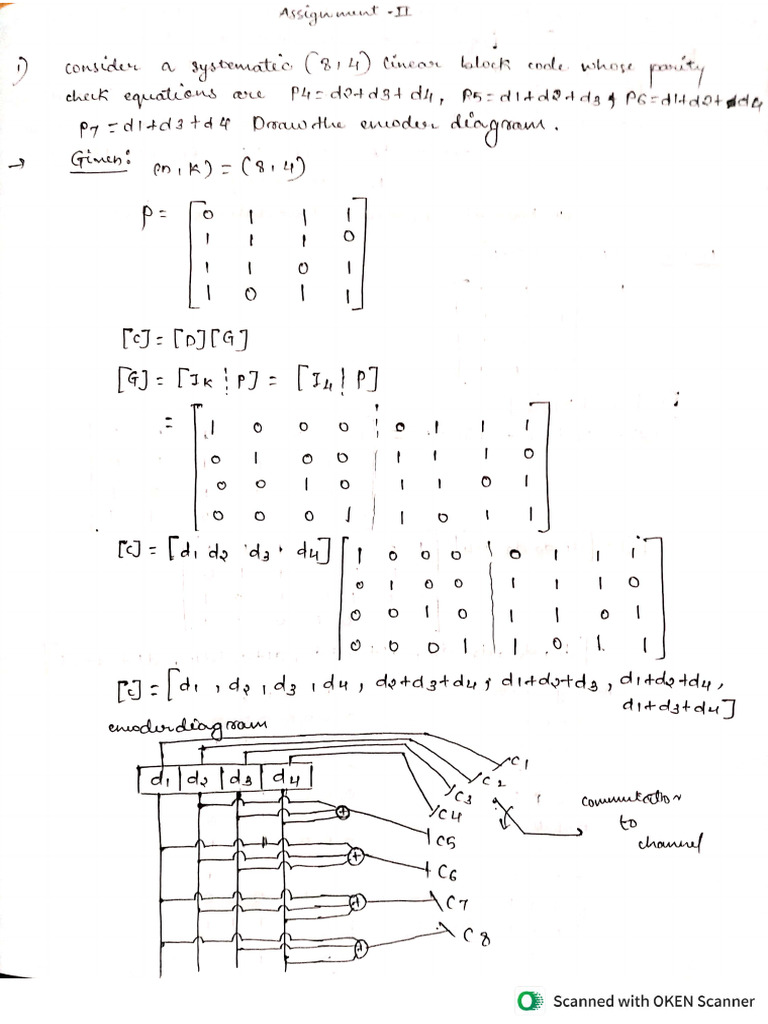 Assignment - II
1) consider a systematic (8,4) linear block code whose parity
check equations are P4=d2+d3+d4, P5=d1+d2+d3 & P6=d1+d2+d4
P7=d1+d3+d4 Draw the encoder diagram.
→ Given: (n,k) = (8,4)
P= [0 1 1 1
1 1 1 0
1 1 0 1
1 0 1 1]
[C] = [D][G]
[G] = [Ik ¦ P] = [I4 | P]
= [1 0 0 0 ¦ 0 1 1 1
0 1 0 0 | 1 1 1 0
0 0 1 0 | 1 1 0 1
0 0 0 1 | 1 0 1 1]
[C] = [d1 d2 d3 d4] [1 0 0 0 | 0 1 1 1
0 1 0 0 | 1 1 1 0
0 0 1 0 | 1 1 0 1
0 0 0 1 | 1 0 1 1]
[C] = [d1, d2, d3, d4, d2+d3+d4, d1+d2+d3, d1+d2+d4,
d1+d3+d4]
encoder diagram
d1 d2 d3 d4
C1
C2
C3
C4
C5
C6
C7
C8
commutation
to
channel
Scanned with OKEN Scanner